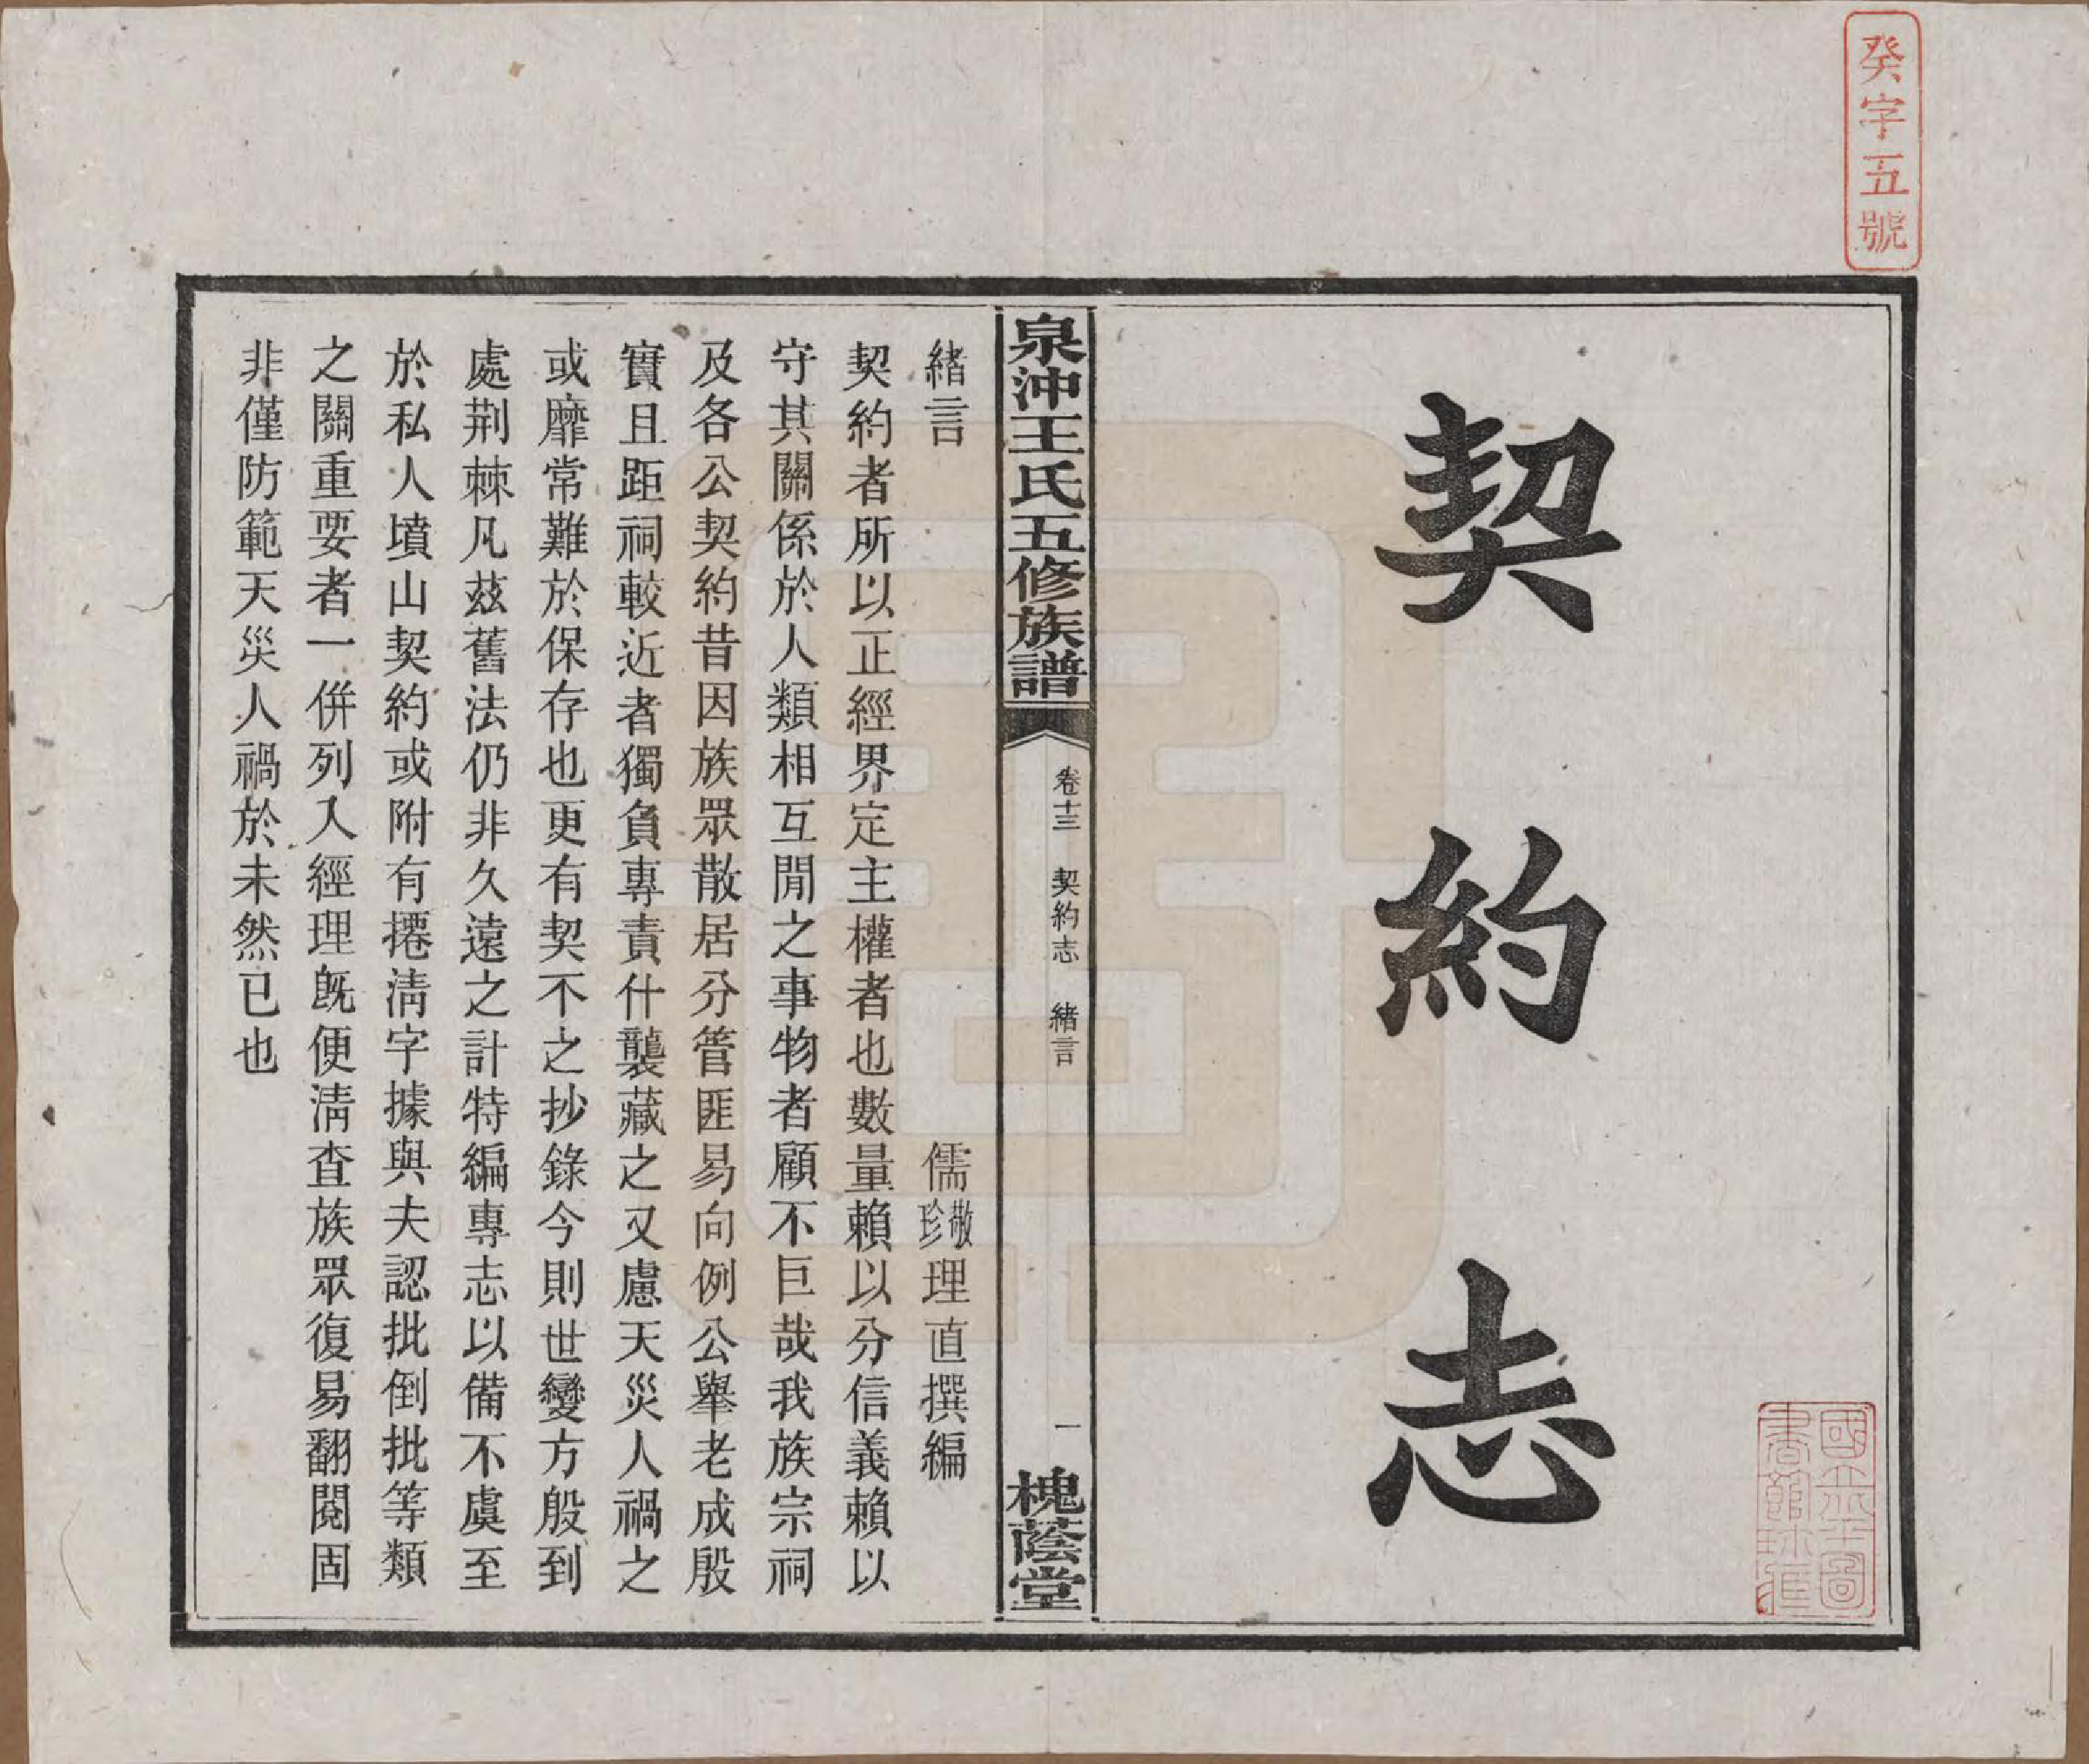 癸字五號
契約志
國立北平圖書館珍藏
泉沖王氏五修族譜
卷十三 契約志 緒言
一
槐蔭堂
緒言
儒珍敝理直撰編
契約者所以正經界定主權者也數量賴以分信義賴以
守其關係於人類相互閒之事物者顧不巨哉我族宗祠
及各公契約昔因族眾散居分管匪易向例公舉老成殷
實且距祠較近者獨負專責什襲藏之又慮天災人禍之
或靡常難於保存也更有契不之抄錄今則世變方殷到
處荆棘凡茲舊法仍非久遠之計特編專志以備不虞至
於私人墳山契約或附有捲淸字據與夫認批倒批等類
之關重要者一併列入經理既便淸查族眾復易翻閱固
非僅防範天災人禍於未然已也